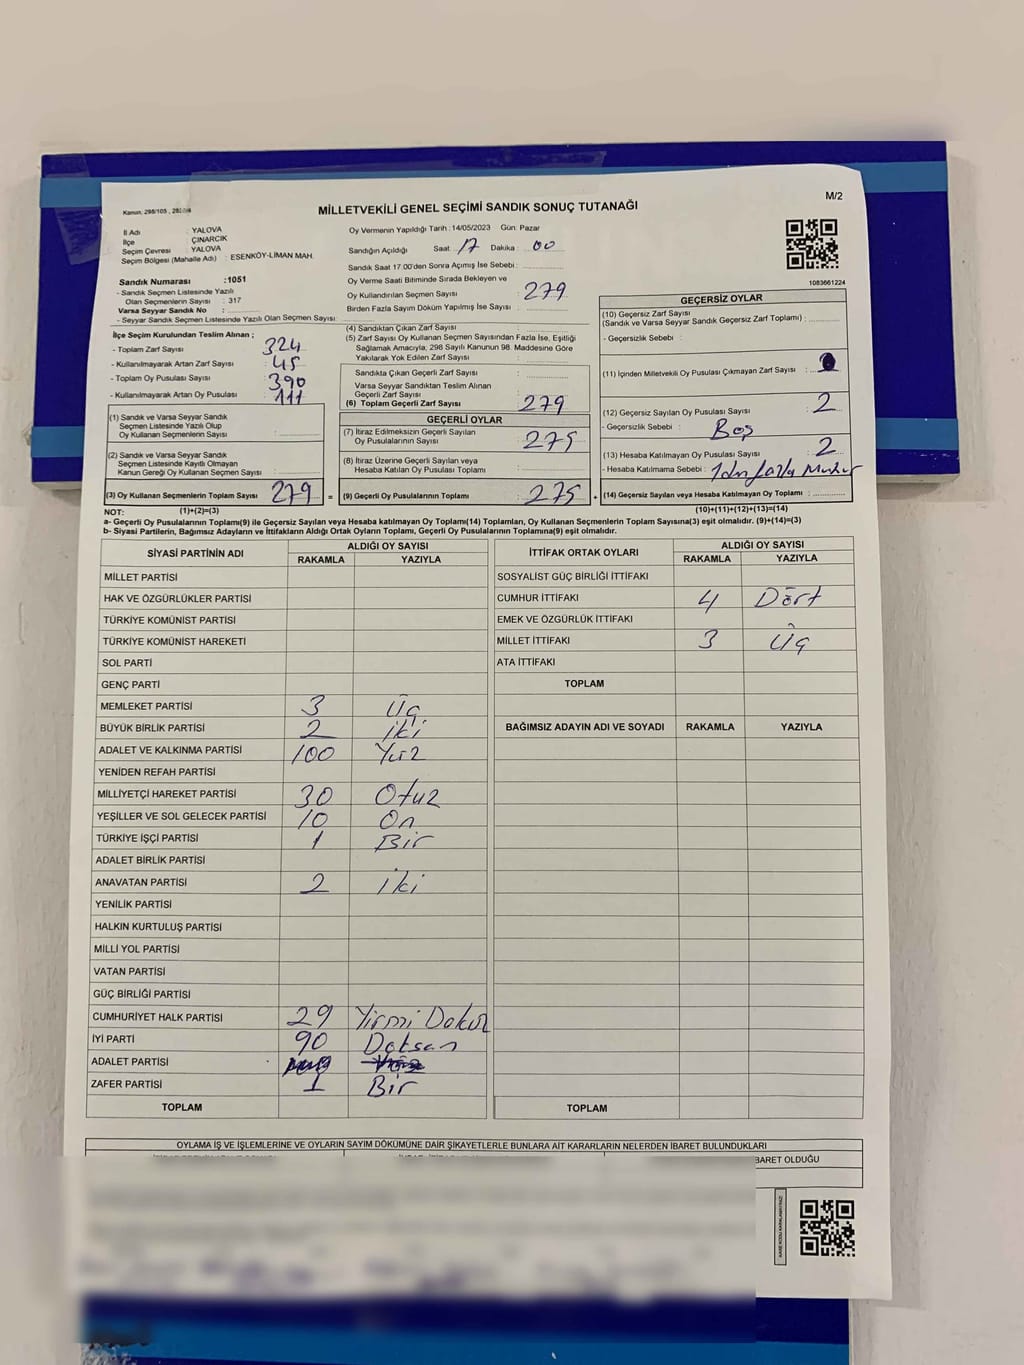 M/2
Kanun, 298/105
MİLLETVEKİLİ GENEL SEÇİMİ SANDIK SONUÇ TUTANAĞI
İl Adı : YALOVA
İlçe : ÇINARCIK
Seçim Çevresi : YALOVA
Seçim Bölgesi (Mahalle Adı) : ESENKÖY-LİMAN MAH.
Sandık Numarası :1051
- Sandık Seçmen Listesinde Yazılı
Olan Seçmenlerin Sayısı : 317
Varsa Seyyar Sandık No :
- Seyyar Sandık Seçmen Listesinde Yazılı Olan Seçmen Sayısı:
İlçe Seçim Kurulundan Teslim Alınan ;
- Toplam Zarf Sayısı : 324
- Kullanılmayarak Artan Zarf Sayısı : 45
- Toplam Oy Pusulası Sayısı : 390
- Kullanılmayarak Artan Oy Pusulası : 111
(1) Sandık ve Varsa Seyyar Sandık
Seçmen Listesinde Yazılı Olup
Oy Kullanan Seçmenlerin Sayısı :
(2) Sandık ve Varsa Seyyar Sandık
Seçmen Listesinde Kayıtlı Olmayan
Kanun Gereği Oy Kullanan Seçmen Sayısı :
(3) Oy Kullanan Seçmenlerin Toplam Sayısı 279 =
Oy Vermenin Yapıldığı Tarih : 14/05/2023 Gün: Pazar
Sandığın Açıldığı Saat: 17 Dakika : 00
Sandık Saat 17.00'den Sonra Açımış İse Sebebi :
Oy Verme Saati Bitiminde Sırada Bekleyen ve
Oy Kullandırılan Seçmen Sayısı : 279
Birden Fazla Sayım Döküm Yapılmış İse Sayısı :
(4) Sandıktan Çıkan Zarf Sayısı :
(5) Zarf Sayısı Oy Kullanan Seçmen Sayısından Fazla İse, Eşitliği
Sağlamak Amacıyla, 298 Sayılı Kanunun 98. Maddesine Göre
Yakılarak Yok Edilen Zarf Sayısı :
Sandıkta Çıkan Geçerli Zarf Sayısı :
Varsa Seyyar Sandıktan Teslim Alınan
Geçerli Zarf Sayısı :
(6) Toplam Geçerli Zarf Sayısı : 279
GEÇERLİ OYLAR
(7) İtiraz Edilmeksizin Geçerli Sayılan
Oy Pusulalarının Sayısı : 275
(8) İtiraz Üzerine Geçerli Sayılan veya
Hesaba Katılan Oy Pusulası Toplamı :
(9) Geçerli Oy Pusulalarının Toplamı : 275 +
1083661224
GEÇERSİZ OYLAR
(10) Geçersiz Zarf Sayısı
(Sandık ve Varsa Seyyar Sandık Geçersiz Zarf Toplamı) :
- Geçersizlik Sebebi :
(11) İçinden Milletvekili Oy Pusulası Çıkmayan Zarf Sayısı :
(12) Geçersiz Sayılan Oy Pusulası Sayısı : 2
- Geçersizlik Sebebi : Boş
(13) Hesaba Katılmayan Oy Pusulası Sayısı : 2
- Hesaba Katılmama Sebebi : 1den fazla Mühür
(14) Geçersiz Sayılan veya Hesaba Katılmayan Oy Toplamı :
NOT: (1)+(2)=(3) (10)+(11)+(12)+(13)=(14)
a- Geçerli Oy Pusulalarının Toplamı(9) ile Geçersiz Sayılan veya Hesaba katılmayan Oy Toplamı(14) Toplamları, Oy Kullanan Seçmenlerin Toplam Sayısına(3) eşit olmalıdır. (9)+(14)=(3)
b- Siyasi Partilerin, Bağımsız Adayların ve İttifakların Aldığı Ortak Oyların Toplamı, Geçerli Oy Pusulalarının Toplamına(9) eşit olmalıdır.
SİYASİ PARTİNİN ADI ALDIĞI OY SAYISI
RAKAMLA YAZIYLA
MİLLET PARTİSİ
HAK VE ÖZGÜRLÜKLER PARTİSİ
TÜRKİYE KOMÜNİST PARTİSİ
TÜRKİYE KOMÜNİST HAREKETİ
SOL PARTİ
GENÇ PARTİ
MEMLEKET PARTİSİ 3 Üç
BÜYÜK BİRLİK PARTİSİ 2 iki
ADALET VE KALKINMA PARTİSİ 100 Yüz
YENİDEN REFAH PARTİSİ
MİLLİYETÇİ HAREKET PARTİSİ 30 Otuz
YEŞİLLER VE SOL GELECEK PARTİSİ 10 On
TÜRKİYE İŞÇİ PARTİSİ 1 Bir
ADALET BİRLİK PARTİSİ
ANAVATAN PARTİSİ 2 iki
YENİLİK PARTİSİ
HALKIN KURTULUŞ PARTİSİ
MİLLİ YOL PARTİSİ
VATAN PARTİSİ
GÜÇ BİRLİĞİ PARTİSİ
CUMHURİYET HALK PARTİSİ 29 Yirmi Dokuz
İYİ PARTİ 90 Doksan
ADALET PARTİSİ
ZAFER PARTİSİ 1 Bir
TOPLAM
İTTİFAK ORTAK OYLARI ALDIĞI OY SAYISI
RAKAMLA YAZIYLA
SOSYALİST GÜÇ BİRLİĞİ İTTİFAKI
CUMHUR İTTİFAKI 4 Dört
EMEK VE ÖZGÜRLÜK İTTİFAKI
MİLLET İTTİFAKI 3 Üç
ATA İTTİFAKI
TOPLAM
BAĞIMSIZ ADAYIN ADI VE SOYADI RAKAMLA YAZIYLA
TOPLAM
OYLAMA İŞ VE İŞLEMLERİNE VE OYLARIN SAYIM DÖKÜMÜNE DAİR ŞİKAYETLERLE BUNLARA AİT KARARLARIN NELERDEN İBARET BULUNDUKLARI
BARET OLDUĞU